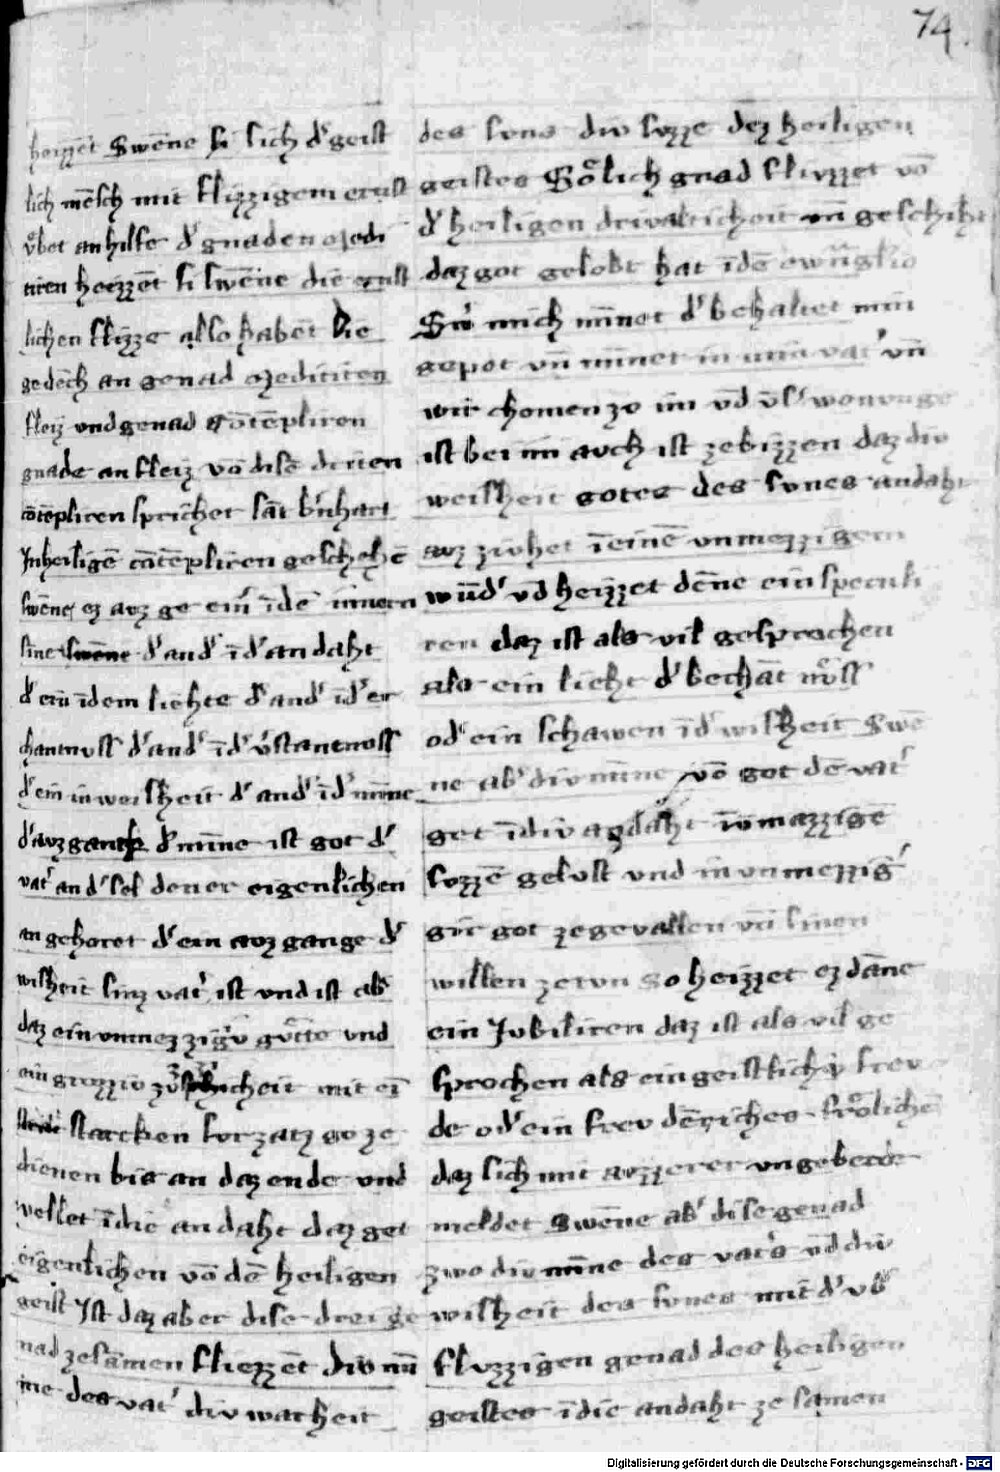 74.
heizzēt Swēne si sich dˀ geist
lich mēsch mit flizzigem ernst
vͦbet an hilfe dˀ gnaden Medi
tiren heizzēt si swēne die ernst
lichen flizze also habēt Die
gedēch an genad Mediren
fleiz vnd genad Cōtēpliren
gnade an fleiz vō disē driien
cōtēpliren sprichet sāt b'nhart
In heiligē cōtēpliren geschehē
swēne ez avz ge einˀ in dē innern
sine swēne dˀ andˀ ī dˀ andaht
dˀ ein īdem liehte dˀ andˀ ī dˀ er
chantnvss dˀ andˀ ī dˀ v'stantnvss
dˀ ein in weisheit dˀ andˀ ī dˀ minne
dˀ avzganck dˀ minne ist got dˀ
vatˀ an dˀ sel den er eigenlichen
an gehoret dˀ ein avzgange dˀ
wisheit sinz vatˀ ist vnd ist abˀ
daz ein vnmezzigiv gvͤte vnd
ein grozziv zvͦ cheit mit eī
starcken forzatz go ze
dienen bis an daz ende vnd
wellet ī die andaht daz get
eigenlichen vō dē heiligen
geist Ist daz aber dise drei ge
nad zesāmen fliezzēt div min
ne des vatˀ div warheit
des svns div svzze dez heiligen
geistes Soͤlich gnad flivzzet vō
dˀ heiligen drivalticheit vn̄ geschiht
daz got gelobt hat ī dē ewāglio
Swˀ mich minnet dˀ behaltet min
gepot vn̄ minnet in min vatˀ vn̄
wir chomen zo im vn̄d vnsˀ wonvnge
ist bei im avch ist ze wizzen daz div
weisheit gotes des svnes andaht
avz zivhet ī einē vnmezzigem
wūdˀ vn̄d heizzet dēne ein speculi
ren daz ist als vil gesprochen
als ein lieht dˀ bechāt nvͤss
odˀ ein schawen ī dˀ wisheit Swē
ne abˀ div minne vō got dē vatˀ
get ī div andaht in mazzigē
svzzē gelvst vnd in vnmezzigˀ
gir got ze gevallen vn̄ sinen
willen zetvn so heizzet ez dāne
ein Jvbiliren daz ist als vil ge
sprochen als ein geistlichiv frev
de odˀ ein frevdēriches froͤlichē
daz sich mit avzzerer vngeberde
meldet Swēne abˀ dise genad
zwo div minne des vatˀs vn̄d div
wisheit des svnes mit dˀ vbˀ
flvzzigen genad des heiligen
geistes ī die andaht ze samen
Digitalisierung gefördert durch die Deutsche Forschungsgemeinschaft - DFG